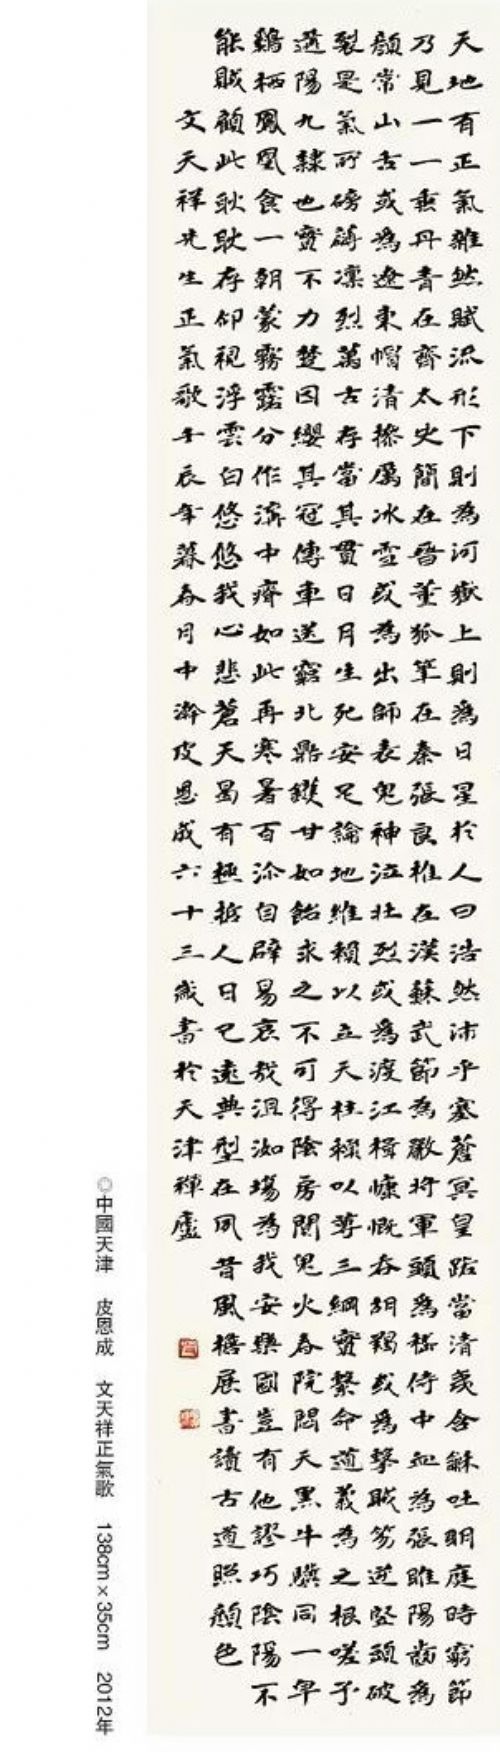 天地有正氣雜然賦流形下則為河嶽上則為日星於人曰浩然沛乎塞蒼冥皇路當清夷含龢吐明庭時窮節
乃見一一垂丹青在齊太史簡在晉董狐筆在秦張良椎在漢蘇武節為嚴將軍頭為嵇侍中血為張睢陽齒為
顏常山舌或為遼東帽清操厲冰雪或為出師表鬼神泣壯烈或為渡江楫慷慨吞胡羯或為擊賊笏逆豎頭破
裂是氣所磅礴凜烈萬古存當其貫日月生死安足論地維賴以立天柱賴以尊三綱實繫命道義為之根嗟予
遘陽九隸也實不力楚囚纓其冠傳車送窮北鼎鑊甘如飴求之不可得陰房闃鬼火春院閟天黑牛驥同一早
鷄栖鳳凰食一朝蒙霧露分作溝中瘠如此再寒暑百沴自辟易哀哉沮洳場為我安樂國豈有他謬巧陰陽不
能賊顧此耿耿存仰視浮雲白悠悠我心悲蒼天曷有極哲人日已遠典型在夙昔風檐展書讀古道照顏色
文天祥先生正氣歌壬辰年暮春月中瀚皮恩成六十三歲書於天津禪廬
◎中國天津 皮恩成 文天祥正氣歌 138cm×35cm 2012年